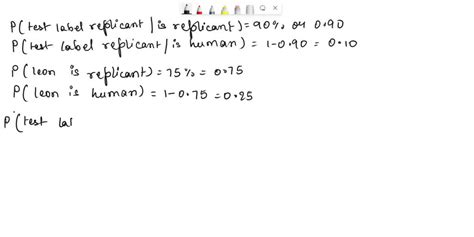 P(test label replicant/is replicant)=90% or 0.90
P(test label replicant/is human) = 1-0.90 = 0.10
P(leon is replicant)=75%=0.75
P(leon is human)=1-0.75=0.25
P(test la